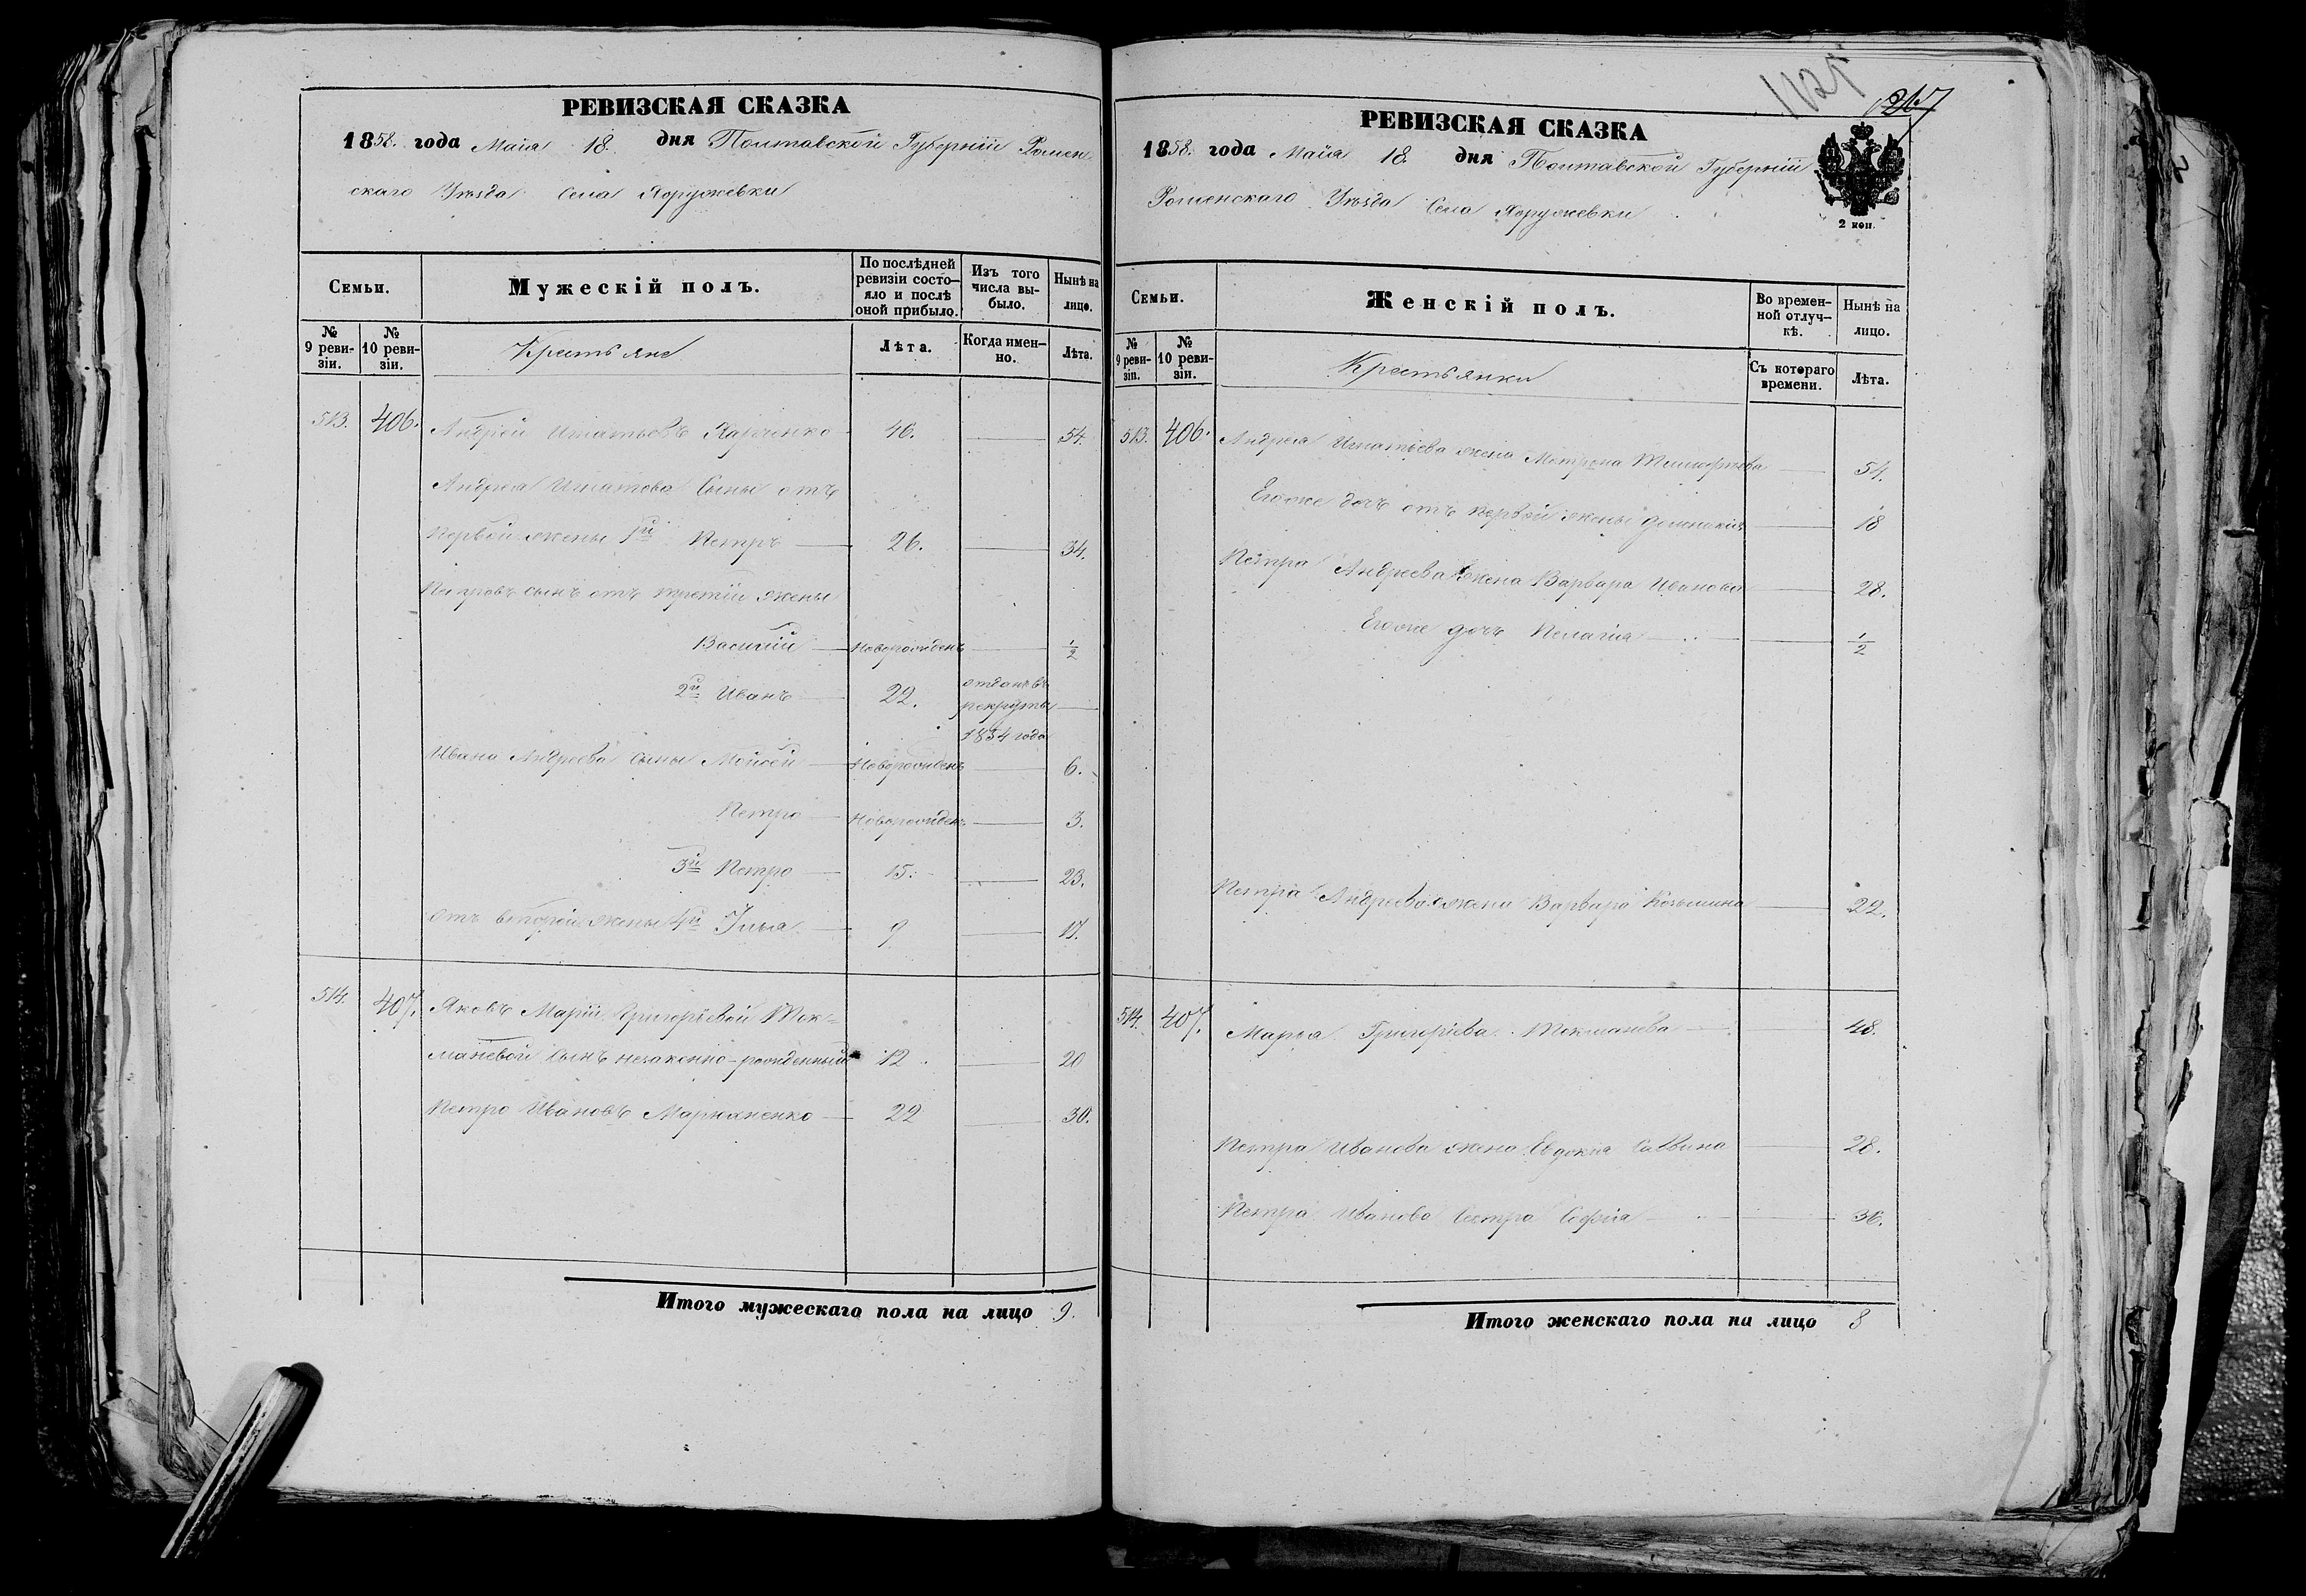 РЕВИЗСКАЯ СКАЗКА
1858. года Маія 18. дня Полтавской Губерніи Ромен-
скаго Уѣзда Села Хоружевки
Семьи.
Мужескій полъ.
По послѣдней ревизіи состо- яло и послѣ оной прибыло.
Изъ того числа вы- было.
Нынѣ на лицо.
№ 9 реви- зіи.
№ 10 реви- зіи.
Крестьяне
Лѣта.
Когда имен- но.
Лѣта.
513. 406. Андрей Игнатьевъ Харченко 46. 54.
Андрея Игнатова Сыны отъ
первой жены 1й Петръ 26. 34.
Петровъ сынъ отъ третіи жены
Василій новорожденъ ½
2й Иванъ 22. отданъ въ
рекруты
1854 года
Ивана Андреева Сыны Мойсей новорожденъ 6.
Петро новорожденъ 3.
3й Петро 15. 23.
отъ второй жены 4й Илья 9 17.
514. 407. Яковъ Маріи Григоріевой Ток-
маневой сынъ незаконно-рожденный 12 20
Петро Ивановъ 22 30.
Итого мужескаго пола на лицо 9.
1247
РЕВИЗСКАЯ СКАЗКА
1858. года Маія 18. дня Полтавской Губерніи
Роменскаго Уѣзда Села Хоружевки
2 коп.
Семьи.
Женскій полъ.
Во времен- ной отлуч- кѣ.
Нынѣ на лицо.
№ 9 реви- зіи.
№ 10 реви- зіи.
Крестьянки
Съ котораго времени.
Лѣта.
513. 406. Андрея Игнатьева жена Матрона 54.
Егоже дочь отъ первой жены 18
Петра Андреева жена Варвара Иванова 28.
Егоже дочь Пелагія ½
Петра Андреева жена Варвара Козьмина 22.
514. 407. Марья Григоріева Токманева 48.
Петра Иванова жена Евдокія Саввина 28.
Петра Иванова Сестра Софія 36.
Итого женскаго пола на лицо 8